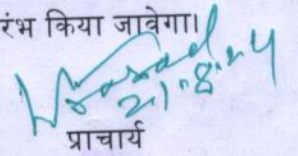 रंभ किया जावेगा।
21.8.24
प्राचार्य